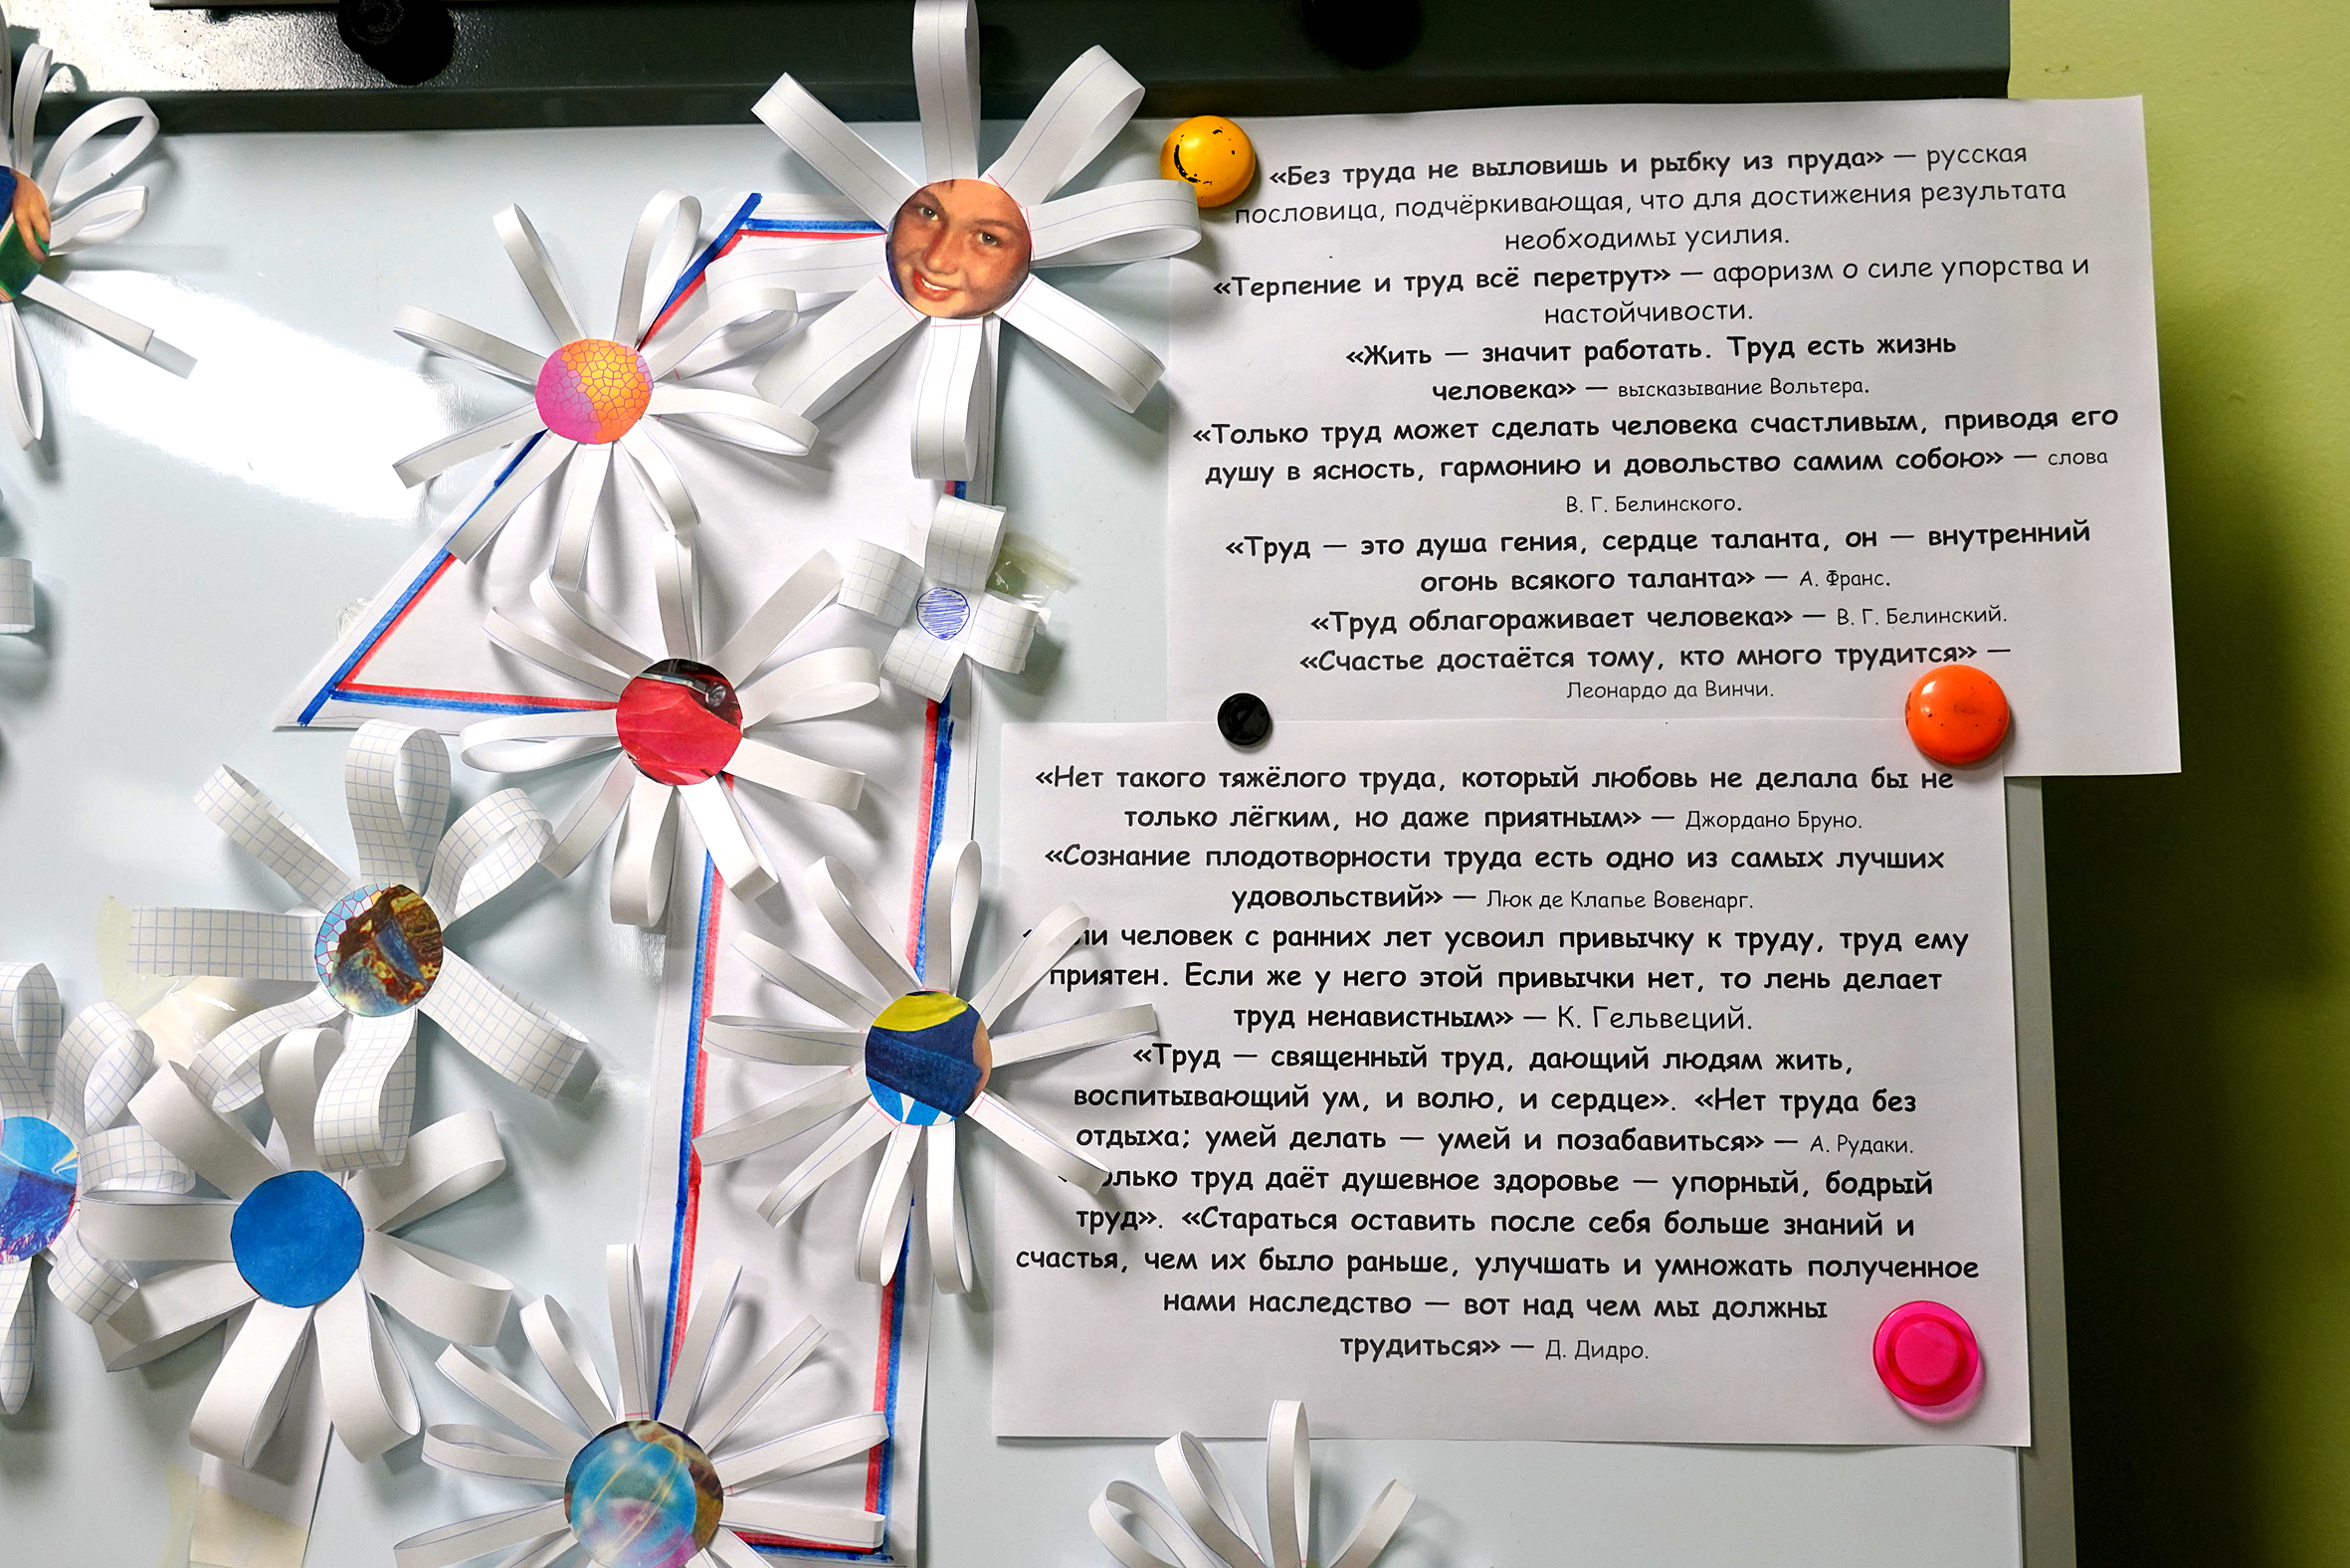 «Без труда не выловишь и рыбку из пруда» — русская
пословица, подчёркивающая, что для достижения результата
необходимы усилия.
«Терпение и труд всё перетрут» — афоризм о силе упорства и
настойчивости.
«Жить — значит работать. Труд есть жизнь
человека» — высказывание Вольтера.
«Только труд может сделать человека счастливым, приводя его
душу в ясность, гармонию и довольство самим собою» — слова
В. Г. Белинского.
«Труд — это душа гения, сердце таланта, он — внутренний
огонь всякого таланта» — А. Франс.
«Труд облагораживает человека» — В. Г. Белинский.
«Счастье достаётся тому, кто много трудится» —
Леонардо да Винчи.
«Нет такого тяжёлого труда, который любовь не делала бы не
только лёгким, но даже приятным» — Джордано Бруно.
«Сознание плодотворности труда есть одно из самых лучших
удовольствий» — Люк де Клапье Вовенарг.
человек с ранних лет усвоил привычку к труду, труд ему
приятен. Если же у него этой привычки нет, то лень делает
труд ненавистным» — К. Гельвеций.
«Труд — священный труд, дающий людям жить,
воспитывающий ум, и волю, и сердце». «Нет труда без
отдыха; умей делать — умей и позабавиться» — А. Рудаки.
труд даёт душевное здоровье — упорный, бодрый
труд». «Стараться оставить после себя больше знаний и
счастья, чем их было раньше, улучшать и умножать полученное
нами наследство — вот над чем мы должны
трудиться» — Д. Дидро.